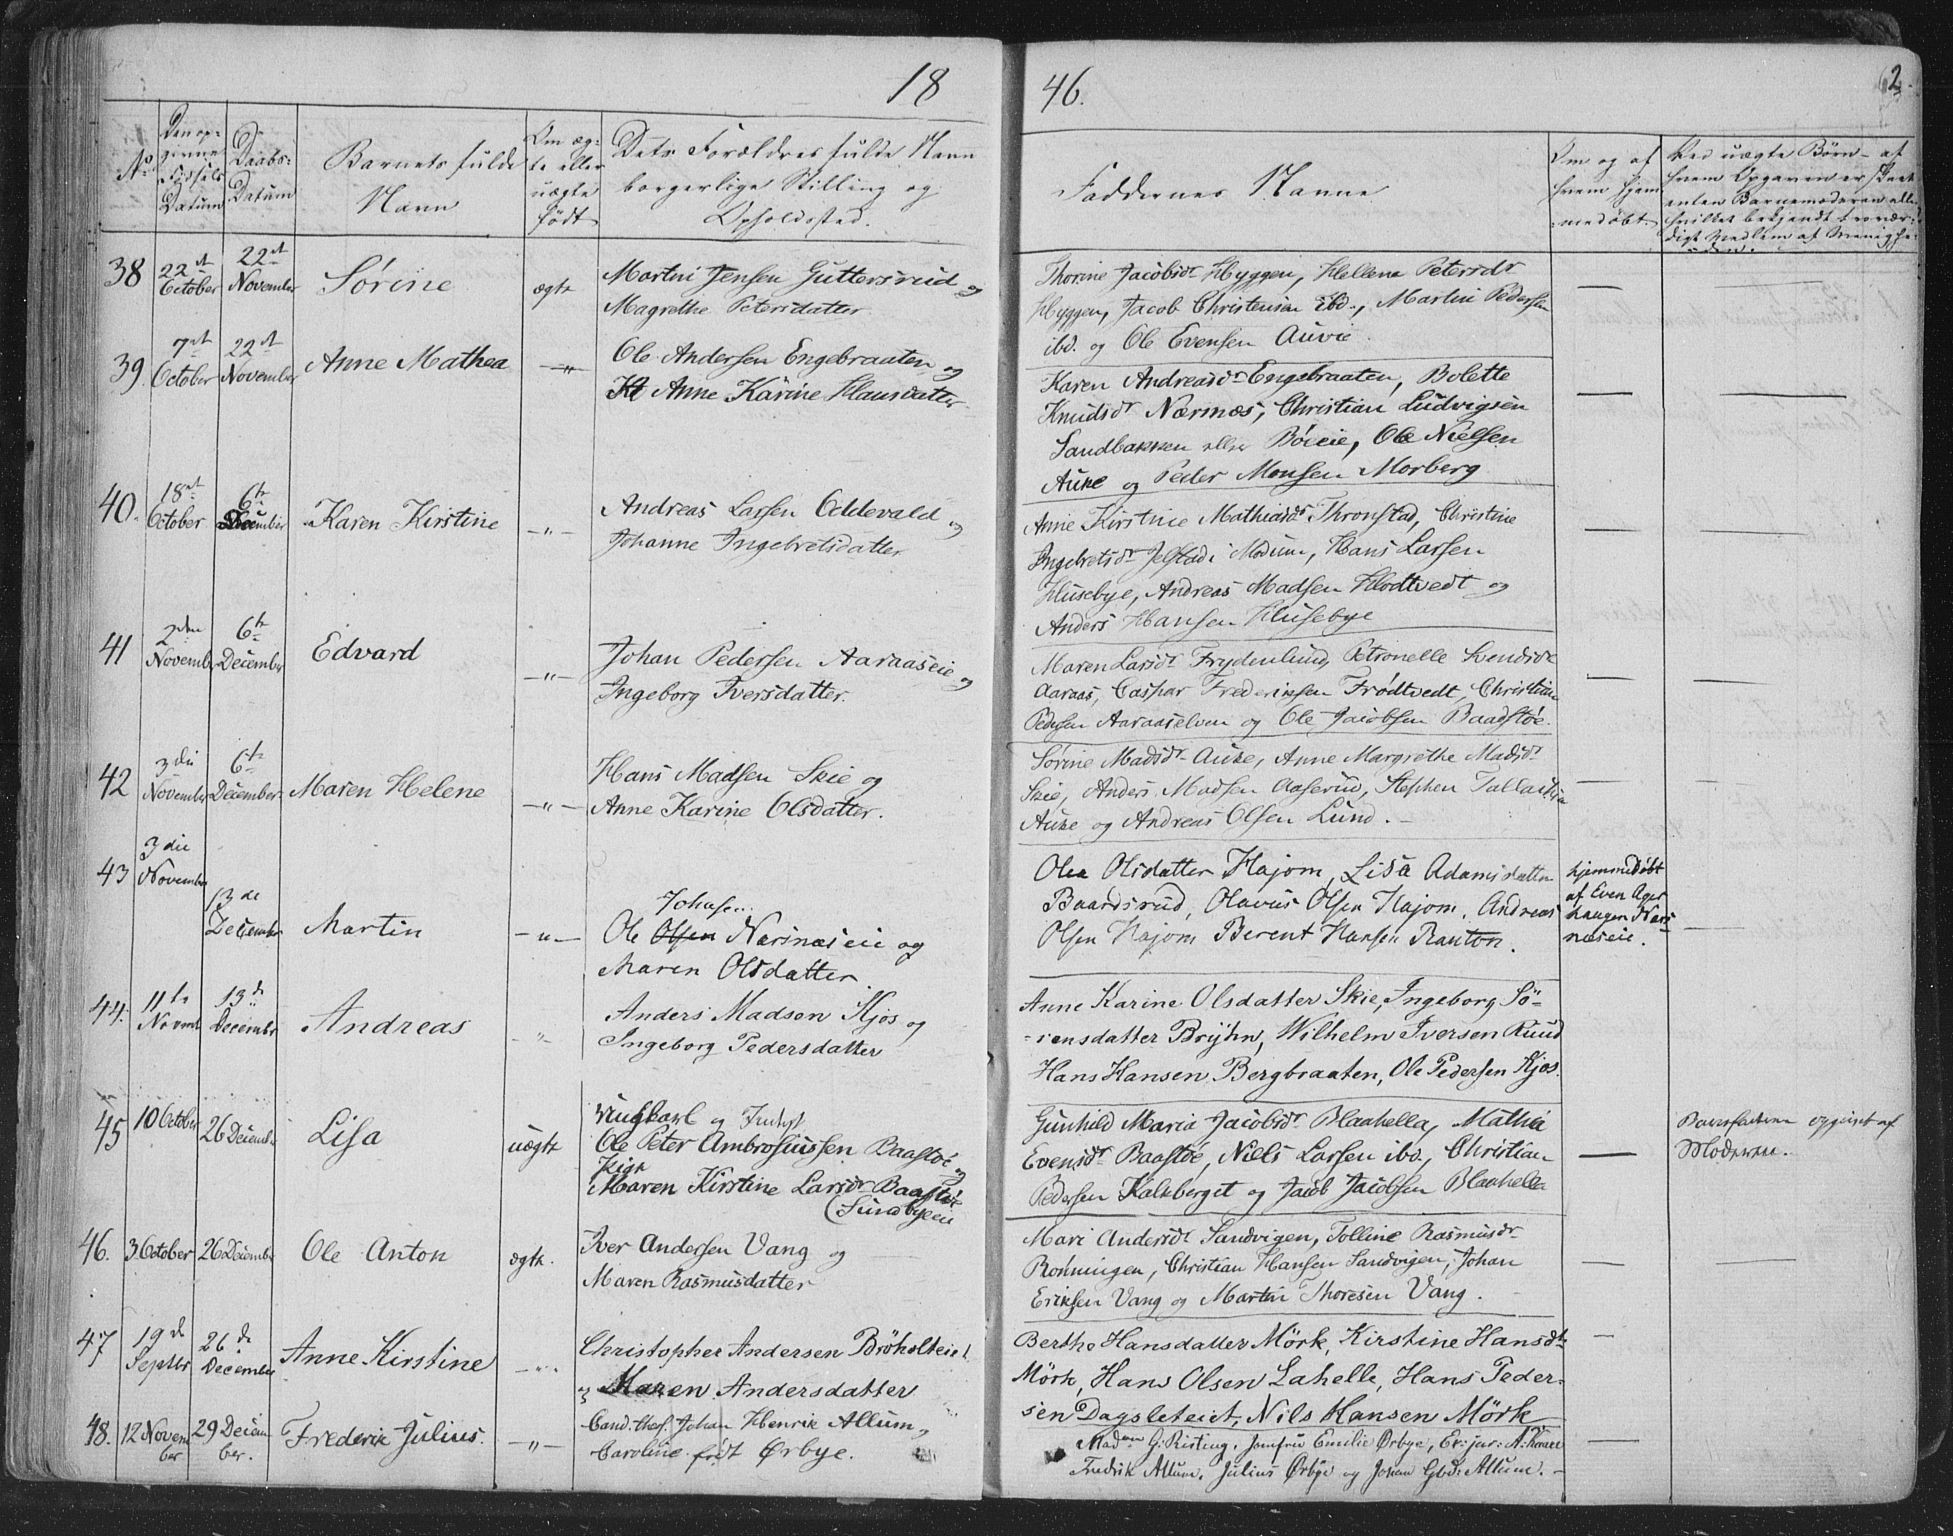 18
46.
2
No
Den opgivne Fødsels Datum
Daabs Datum
Barnets fulde Navn
Om ægte eller uægte født
Dets Forældres fulde Navn borgerlige Stilling og Opholdssted.
Faddernes Navne
Om og af hvem hjemmedøbt.
Ved uægte Børn - af hvem Opgaven er skeet enten Barnemoderen eller hvilket bekjendt troværdigt Medlem af Menighe
38 22de October 22de November Sørine ægte
Martin Jensen Guttersrud og
Magrethe Petersdatter
Thorine Jacobsdr Hyggen, Hellene Petersdr
Hyggen, Jacob Christensen ibd., Martin Pedersen
ibd. og Ole Evensen Auvie.
39. 7de October 22de November Anne Mathea —"—
Ole Andersen Engebraaten og
Anne Karine Hansdatter
Karen Andreasdr Engebraaten, Bolette
Knudsdr Nærnæs, Christian Ludvigsen
Sandbakken eller Böieie, Ole Nielsen
Auke og Peder Monsen Morberg
40. 18de October 6te December Karen Kirstine —"—
Andreas Larsen Oddevald og
Johanne Ingebretsdatter
Anne Kirstine Mathiasdr Thronstad, Christine
Ingebretsdr Jelstad i Modum, Hans Larsen
Husebye, Andreas Madsen Hlodtvedt og
Anders Hansen Husebye
41 2den November 6te December Edvard —"—
Johan Pedersen Aaraaseie og
Ingeborg Iversdatter.
Maren Larsdr Frydenlund, Petronelle Svendsdr
Aaraas, Caspar Frederiksen Frödtvedt, Christian
Pedersen Aaraaselven og Ole Jacobsen Baadstøe.
42 3die November 6te December Maren Helene —"—
Hans Madsen Skie og
Anne Karine Olsdatter.
Sørine Madsdr Auke, Anne Margrethe Madsdr
Skie, Anders Madsen Aaserud, Stephen Tallaksen
Auke og Andreas Olsen Lund.
43 3die November 13de December Martin —"—
Johnsen
Ole Olsen Nærnæseie og
Maren Olsdatter.
Olea Olsdatter Hajom, Lisa Adamsdatter
Baardsrud, Olavus Olsen Hajom, Andreas
Olsen Hajom Berent Hansen Ranton.
hjemmedøbt
af Even Ager
haugen Nærs
næseie.
44. 11te Novmb 13de December Andreas
Anders Madsen Kjos og
Ingeborg Pedersdatter
Anne Karine Olsdatter Skie, Ingeborg Sö-
rensdatter Bryhn, Wilhelm Iversen Ruud
Hans Hansen Bergbraaten, Ole Pedersen Kjos.
45 10 October 26 Decemb. Lisa uægte
Ungkarl og Inderst
Ole Peter Ambrosiussen Baastøe og
Pige
Maren Kirstine Larsdr Baastøe
(Sundbyeie
Gunhild Maria Jacobsdr Blaahella, Mathia
Evensdr Baastøe, Niels Larsen ibd., Christian
Pedersen Kalkberget og Jacob Jacobsen Blaahella
Barnefaderen opgivet af
Moderen.
46. 3 October 26 December Ole Anton ægte.
Iver Andersen Vang og
Maren Rasmusdatter
Mari Andersdr Sandvigen, Tolline Rasmusdr
Rønningen, Christian Hansen Sandvigen, Johan
Eriksen Vang og Martin Thoresen Vang.
47 19de Septbr 26de December Anne Kirstine —"—
Christopher Andersen Bröholteiet
og Maren Andersdatter
Berthe Hansdatter Mörk, Kirstine Hansdtr
Mörk, Hans Olsen Lahelle, Hans Peder-
sen Dagsleteiet, Nils Hansen Mörk
48. 12 November 29 December. Frederik Julius. —"—
Cand. theol. Johan Henrik Allum og
Caroline født Ørbye.
Madme G. Risting, Jomfru Emilie Ørbye, Ex: jur: A:
Fredrik Allum, Julius Ørbye og Johan Gbd: Allum.